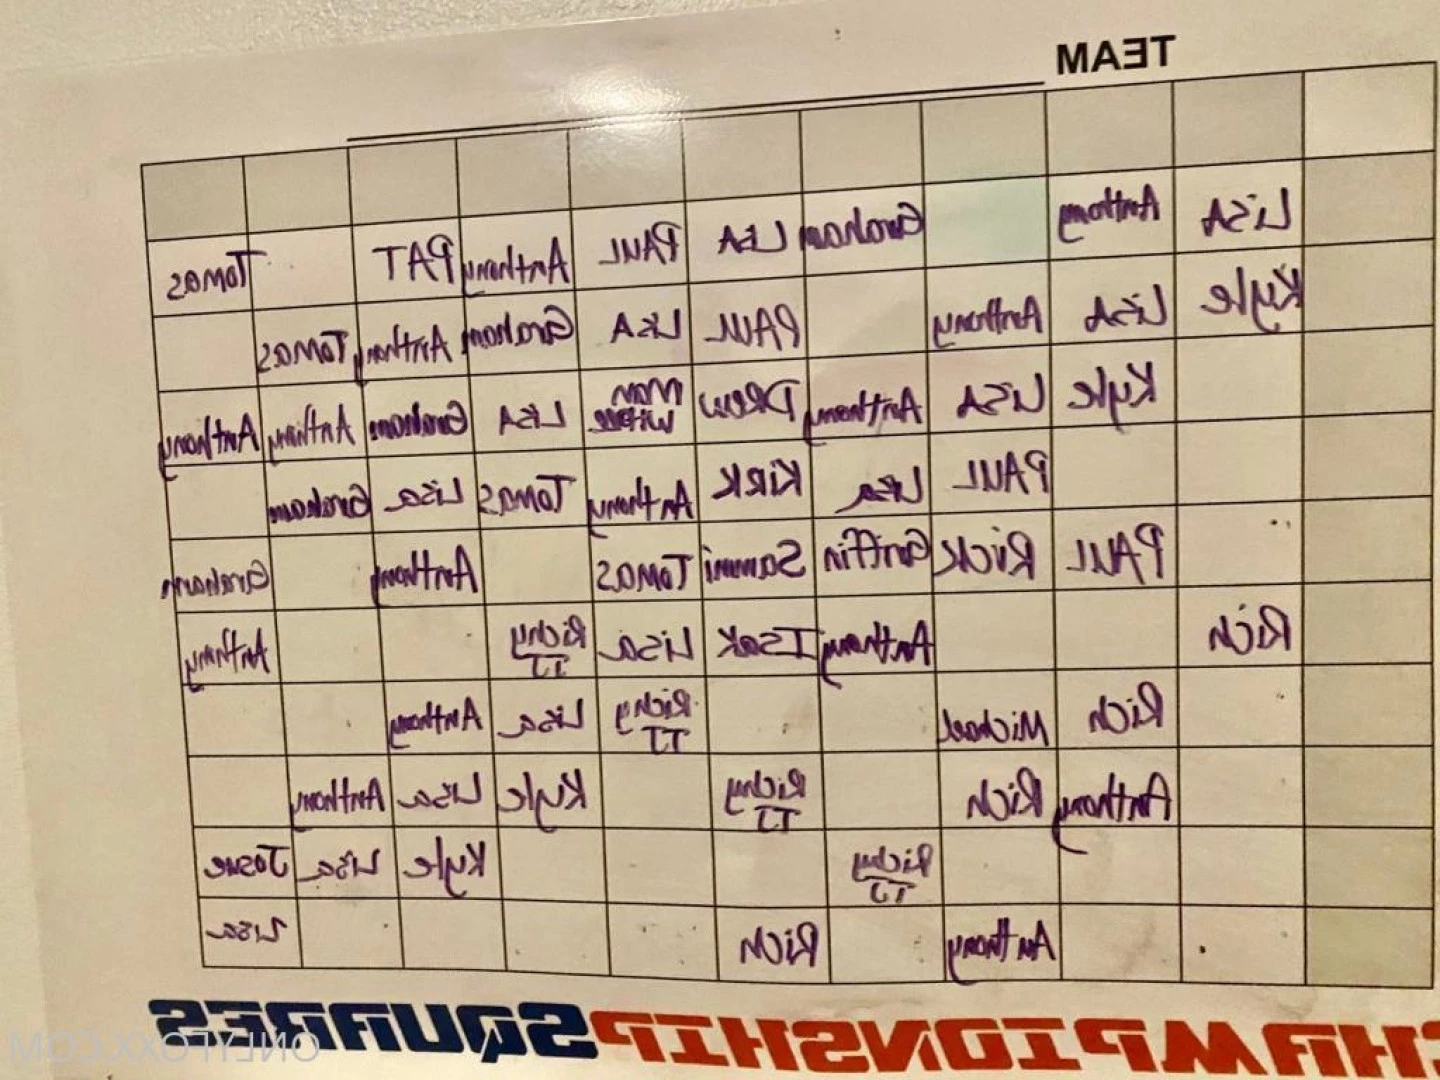 TEAM
LiSA Anthony Graham LISA PAUL Anthony PAT Tomas
Kyle LiSA Anthony PAUL LISA Graham Anthony Tomas
Kyle LISA Anthony DREW Man LISA Graham Anthony Anthony
PAUL Lisa KiRK Anthony Tomas Lisa Graham
PAUL RiCK Griffin Sammi Tomas Anthony Graham
Rich Anthony Isak Lisa Richy TJ Anthony
Rich Michael Richy TJ Lisa Anthony
Anthony Rich Richy TJ Kyle Lisa Anthony
Richy TJ Kyle Lisa Josue
Anthony Rich Lisa
CHAMPIONSHIP SQUARES
ONLYFOXX.COM